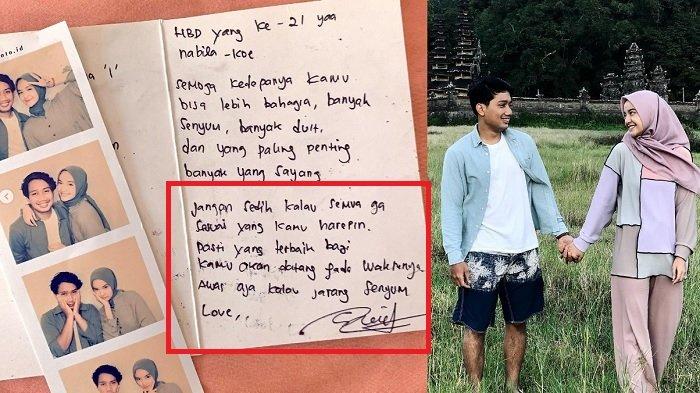 oto.id
HBD yang ke - 21 yaa
nabila - koe
semoga kedepanya kamu
bisa lebih bahagia, banyak
senyum, banyak duit,
dan yang paling penting
banyak yang sayang
jangan sedih kalau semua ga
sesuai yang kamu harepin.
pasti yang terbaik bagi
kamu akan datang pada waktunya
awas aja kalau jarang senyum
Love,,